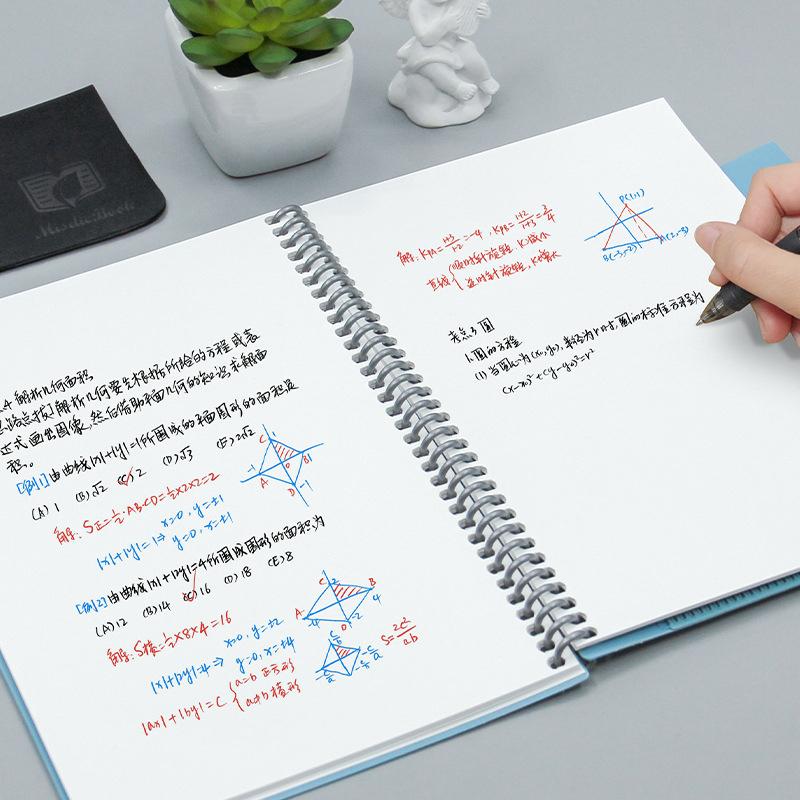 2.4 解析几何面积
[思路点拨]解析几何要先根据所给的方程或表
达式画出图像,然后借助平面几何的知识求解面
积。
[例1]由曲线|x|+|y|=1所围成的平面图形的面积是
(A)1 (B)√2 (C)2 (D)√3 (E)2√2
解:S=½·AB·CD=½×2×2=2
|x|+|y|=1⇒ x=0,y=±1
y=0,x=±1
C
1
-1
O
B1
A
D
-1
[例2]由曲线|x|+|2y|=4所围成图形的面积为
(A)12 (B)14 (C)16 (D)18 (E)8
解:S楼=½×8×4=16
|x|+|2y|=4⇒ x=0,y=±2
y=0,x=±4
C 2
B
4
A
-4
D -2
|ax|+|by|=C {a=b 正方形
a≠b 楼形
S=2c²/ab
解:KPA=(1+3)/(1-2)=-4,KPB=(1+2)/(1+3)=3/4
直线{顺时针旋转,K减小
逆时针旋转,K增大
P(1,1)
B(-3,-2)
A(2,-3)
考点3 圆
1.圆的方程
(1)当圆心为(x₀,y₀),半径为r时,圆的标准方程为
(x-x₀)²+(y-y₀)²=r²